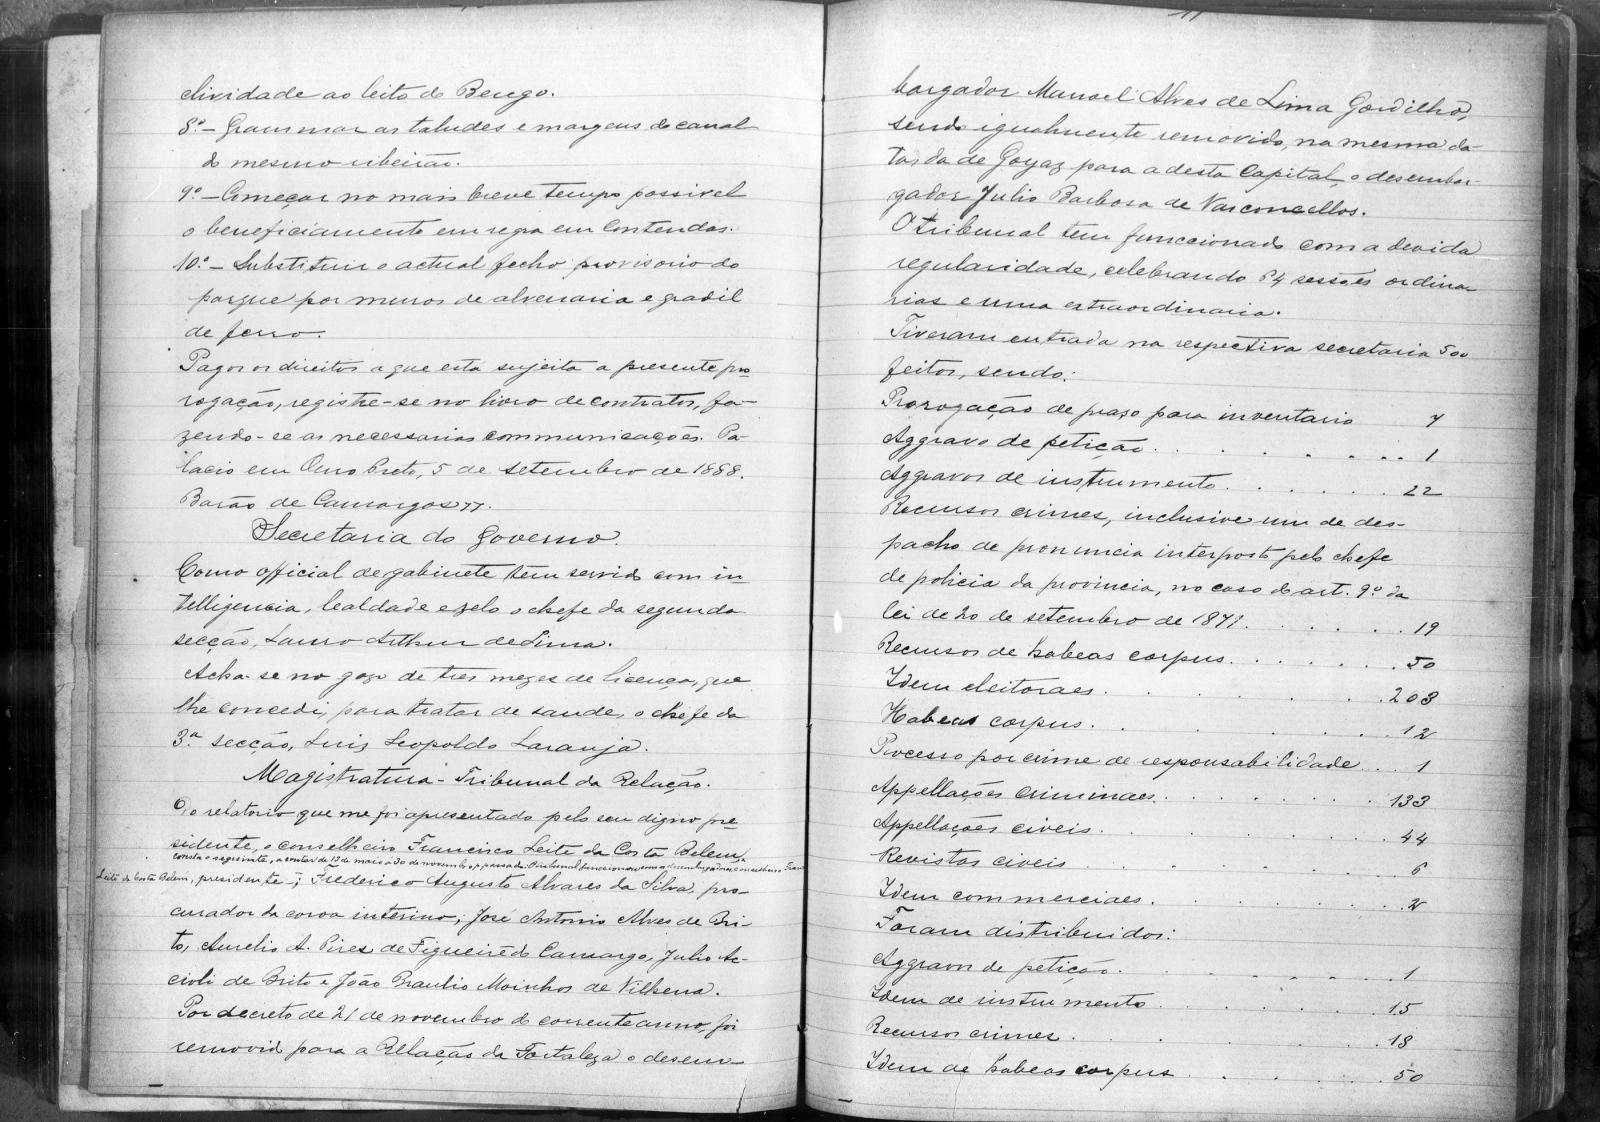 clividade ao leito do Berego.
8.º - Grammar as taludes e margens do canal
do mesmo ribeirão.
9.º - Começar no mais breve tempo possivel
o beneficiamento em regra em Contendas.
10.º - Substituir o actual fecho provisorio do
parque por muros de alvenaria e gradil
de ferro.
Pagos os direitos a que está sujeita a presente pro
rogação, registre-se no livro de contratos, fa-
zendo-se as necessarias communicações. Pa-
lacio em Ouro Preto, 5 de setembro de 1888.
Barão de Camargos".
Secretaria do Governo.
Como official de gabinete tem servido com in
telligencia, lealdade e zelo o chefe da segunda
secção, Lauro Arthur de Lima.
Acha-se no gozo de tres mezes de licença, que
lhe concedi, para tratar de saude, o chefe da
3.ª secção, Luiz Leopoldo Laranja.
Magistratura - Tribunal da Relação.
Do relatorio que me foi apresentado pelo seu digno pre
sidente, o conselheiro Francisco Leite da Costa Belem,
consta o seguinte, a contar de 13 de maio a 30 de novembro p. passado. O tribunal funccionou com os desembargadores, conselheiro Fran
Leite da Costa Belem, presidente -; Frederico Augusto Alvares da Silva, pro-
curador da coroa interino; José Antonio Alves de Bri-
to, Aurelio A. Pires de Figueirêdo Camargo, Julio Ac-
cioli de Brito e João Braulio Moinhos de Vilhena.
Por decreto de 21 de novembro do corrente anno, foi
removido para a Rellação da Fortaleza o desem-
bargador Manoel Alves de Lima Gordilho,
sendo igualmente removido, na mesma da-
ta, da de Goyaz para a desta Capital, o desembar-
gador Julio Barbosa de Vasconcellos.
O tribunal tem funccionado com a devida
regularidade, celebrando 54 sessões ordina-
rias e uma extraordinaria.
Tiveram entrada na respectiva secretaria 500
feitos, sendo:
Prorogação de praso para inventario 7
Aggravo de petição. . . . . . . . . 1
Aggravos de instrumento. . . . . . 22
Recursos crimes, inclusive um de des-
pacho de pronuncia interposto pelo chefe
de policia da provincia, no caso do art. 9.º da
lei de 20 de setembro de 1871. . . . . . . 19
Recursos de habeas corpus. . . . . . . 50
Idem eleitoraes. . . . . . . 203
Habeas corpus. . . . . . . 12
Processo por crime de responsabilidade . . 1
Appellações criminaes. . . . . . . 133
Appellações civeis. . . . . . . 44
Revistas civeis . . . . . . . 6
Idem commerciaes. . . . . . . 2
Foram distribuidos:
Aggravos de petição. . . . . . . 1
Idem de instrumento . . . . . . 15
Recursos crimes. . . . . . . 18
Idem de habeas corpus . . . . . 50